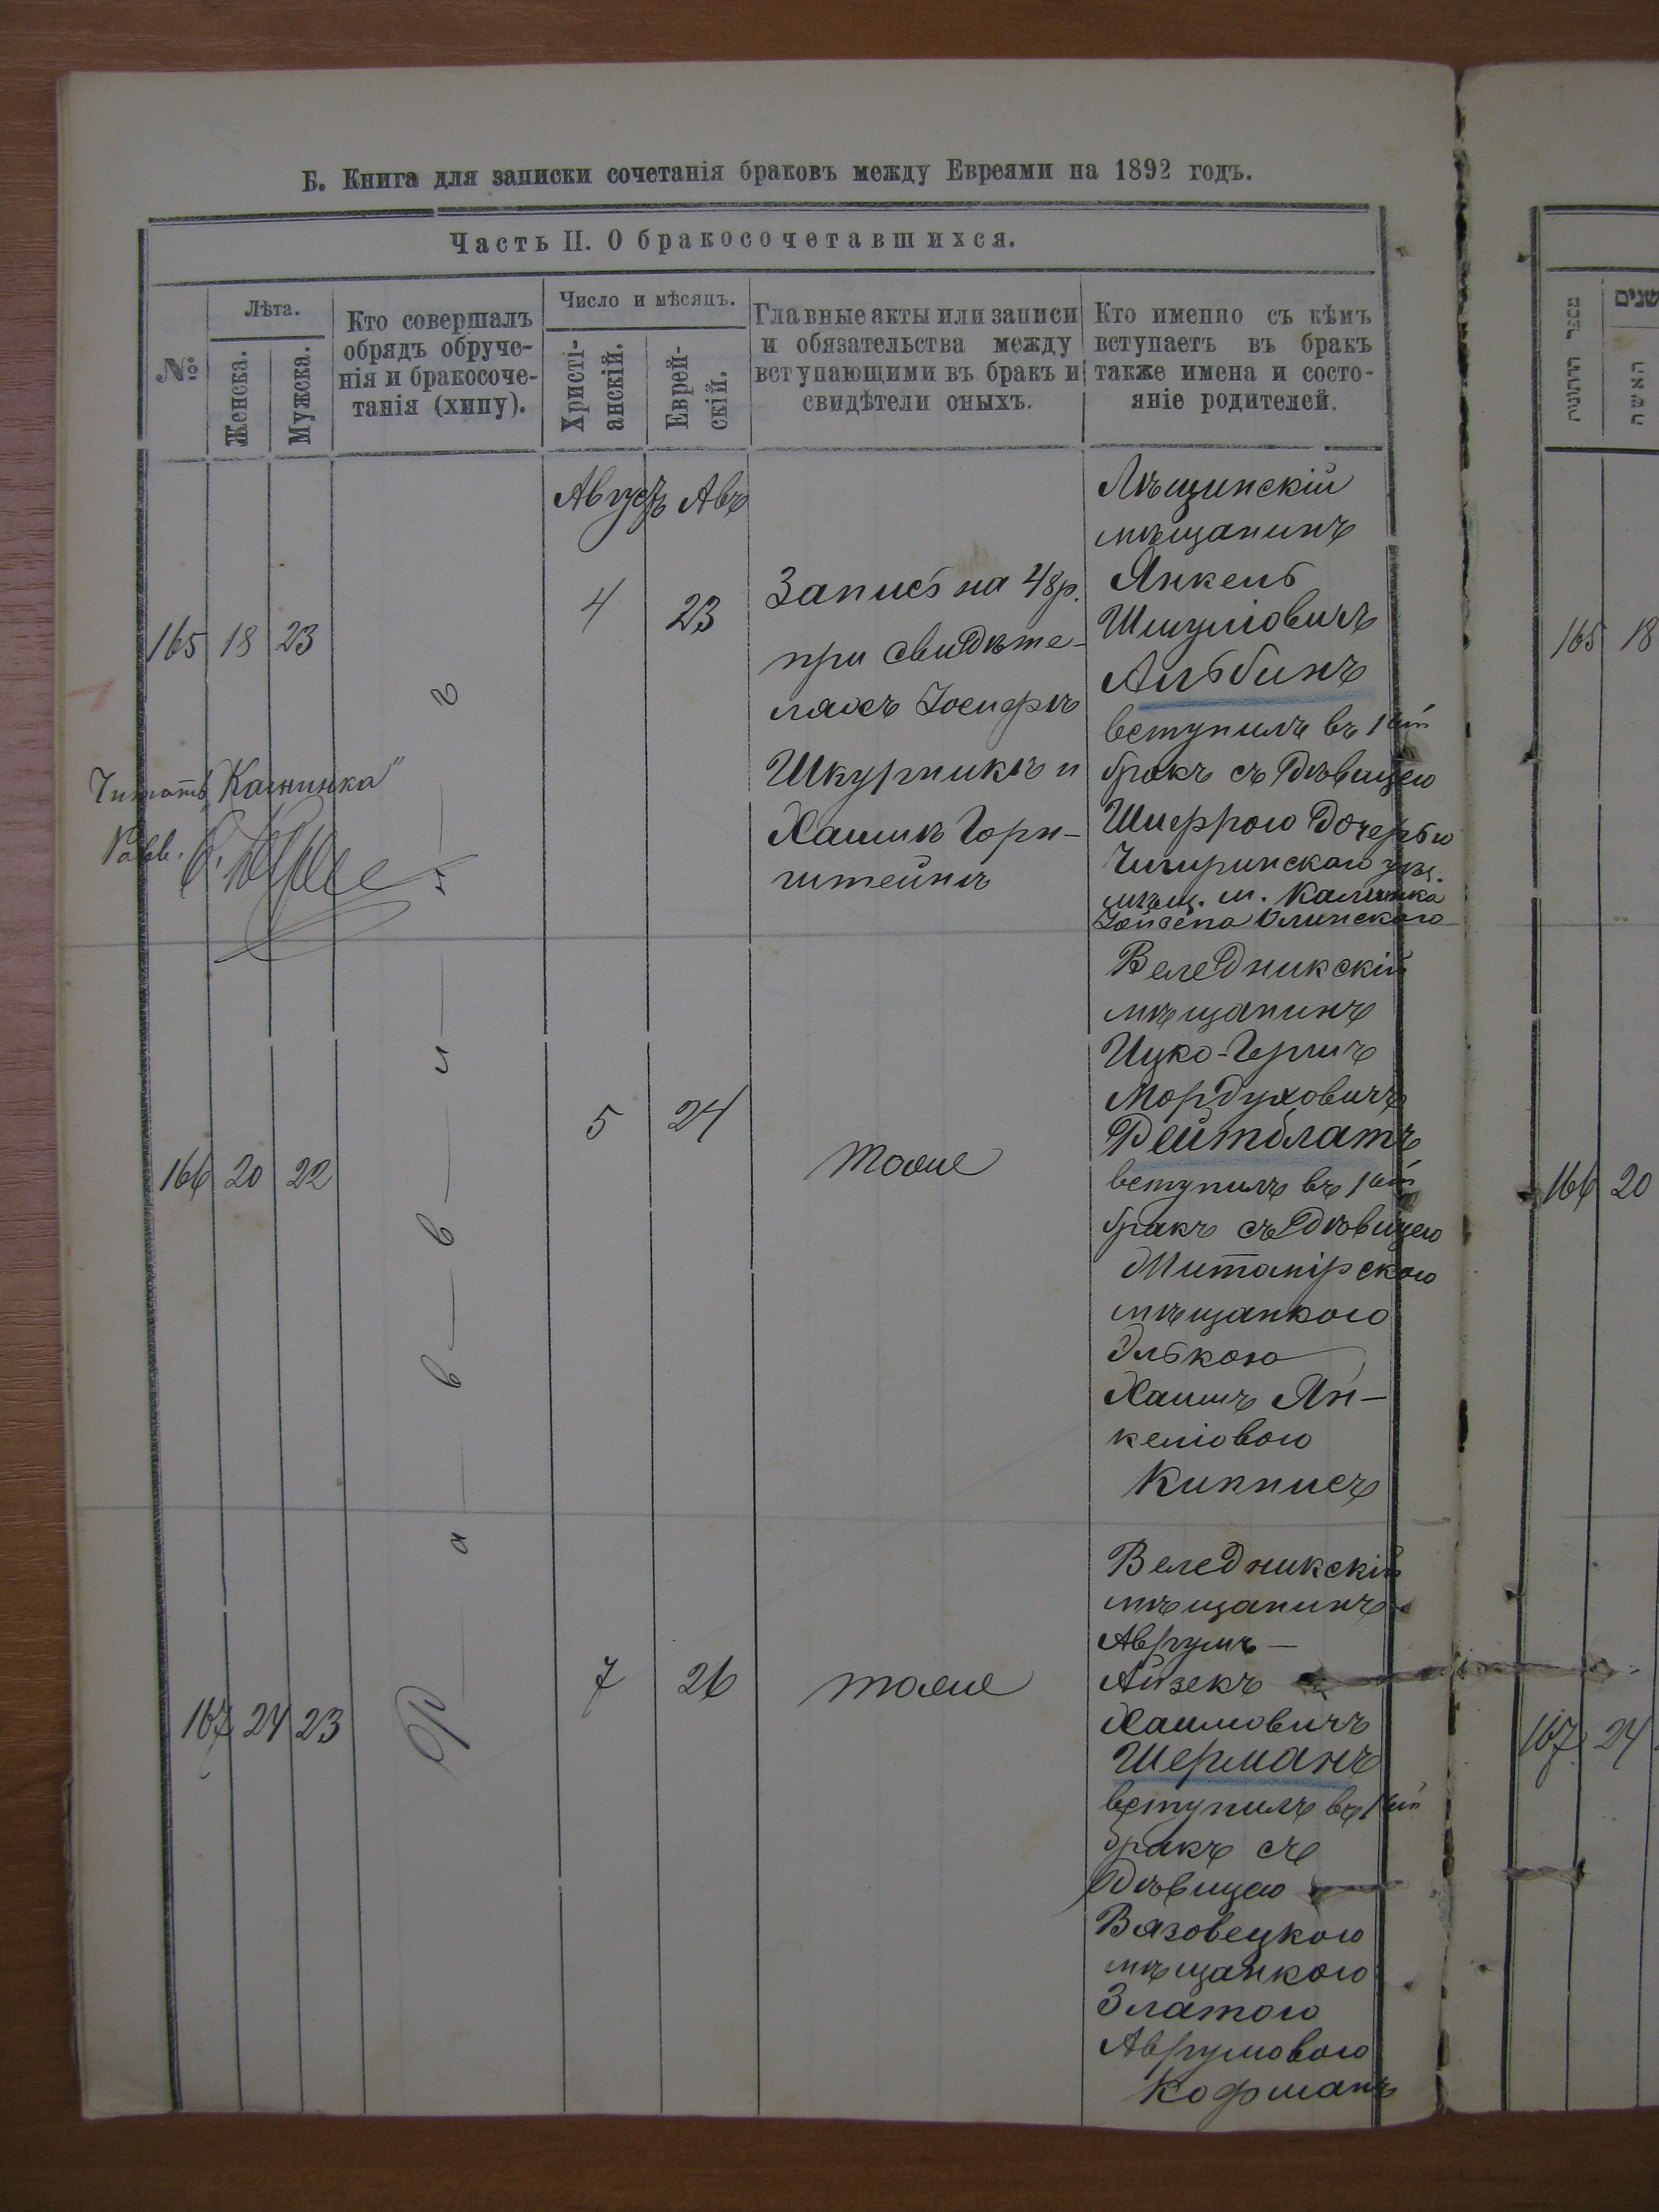 Б. Книга для записки сочетанія браковъ между Евреями на 1892 годъ.
Часть II. О бракосочетавшихся.
№
Лѣта.
Женска.
Мужска.
Кто совершалъ
обрядъ обруче-
нія и бракосоче-
танія (хипу).
Число и мѣсяцъ.
Христі-
анскій.
Еврей-
скій.
Главные акты или записи
и обязательства между
вступающими въ бракъ и
свидѣтели оныхъ.
Кто именно съ кѣмъ
вступаетъ въ бракъ
также имена и состо-
яніе родителей.
Августъ Авъ
165 18 23
4 23
Запись на 48 р.
при свидѣте-
ляхъ Іосифѣ
Шкурникѣ и
Хаимѣ Горн-
штейнѣ
мѣщанинъ
Янкель
Шмуліовичъ
Альбинъ
вступилъ въ 1ый
бракъ съ дѣвицею
Шифрою дочерью
Чигиринскаго уѣз.
мѣщ. м. Калинка
Олинского
Читать „Каминка"
Равв.
Раввинъ
166 20 22
5 24
тоже
Веледникскій
мѣщанинъ
Ицко-Гершъ
Мордуховичъ
Рейтблатъ
вступилъ въ 1ый
бракъ съ дѣвицею
Житомірскою
мѣщанкою
Элькою
Хаимъ Ян-
келіовою
Кипписъ
167 24 23
7 26
тоже
Веледникскій
мѣщанинъ
Аврумъ-
Айзекъ
Хаимовичъ
Шерманъ
вступилъ въ 1ый
бракъ съ
дѣвицею
Вязовецкою
мѣщанкою
Златою
Аврумовою
Кофманъ
מספר החתונות
שנים
האשה
165 18
166 20
167 24